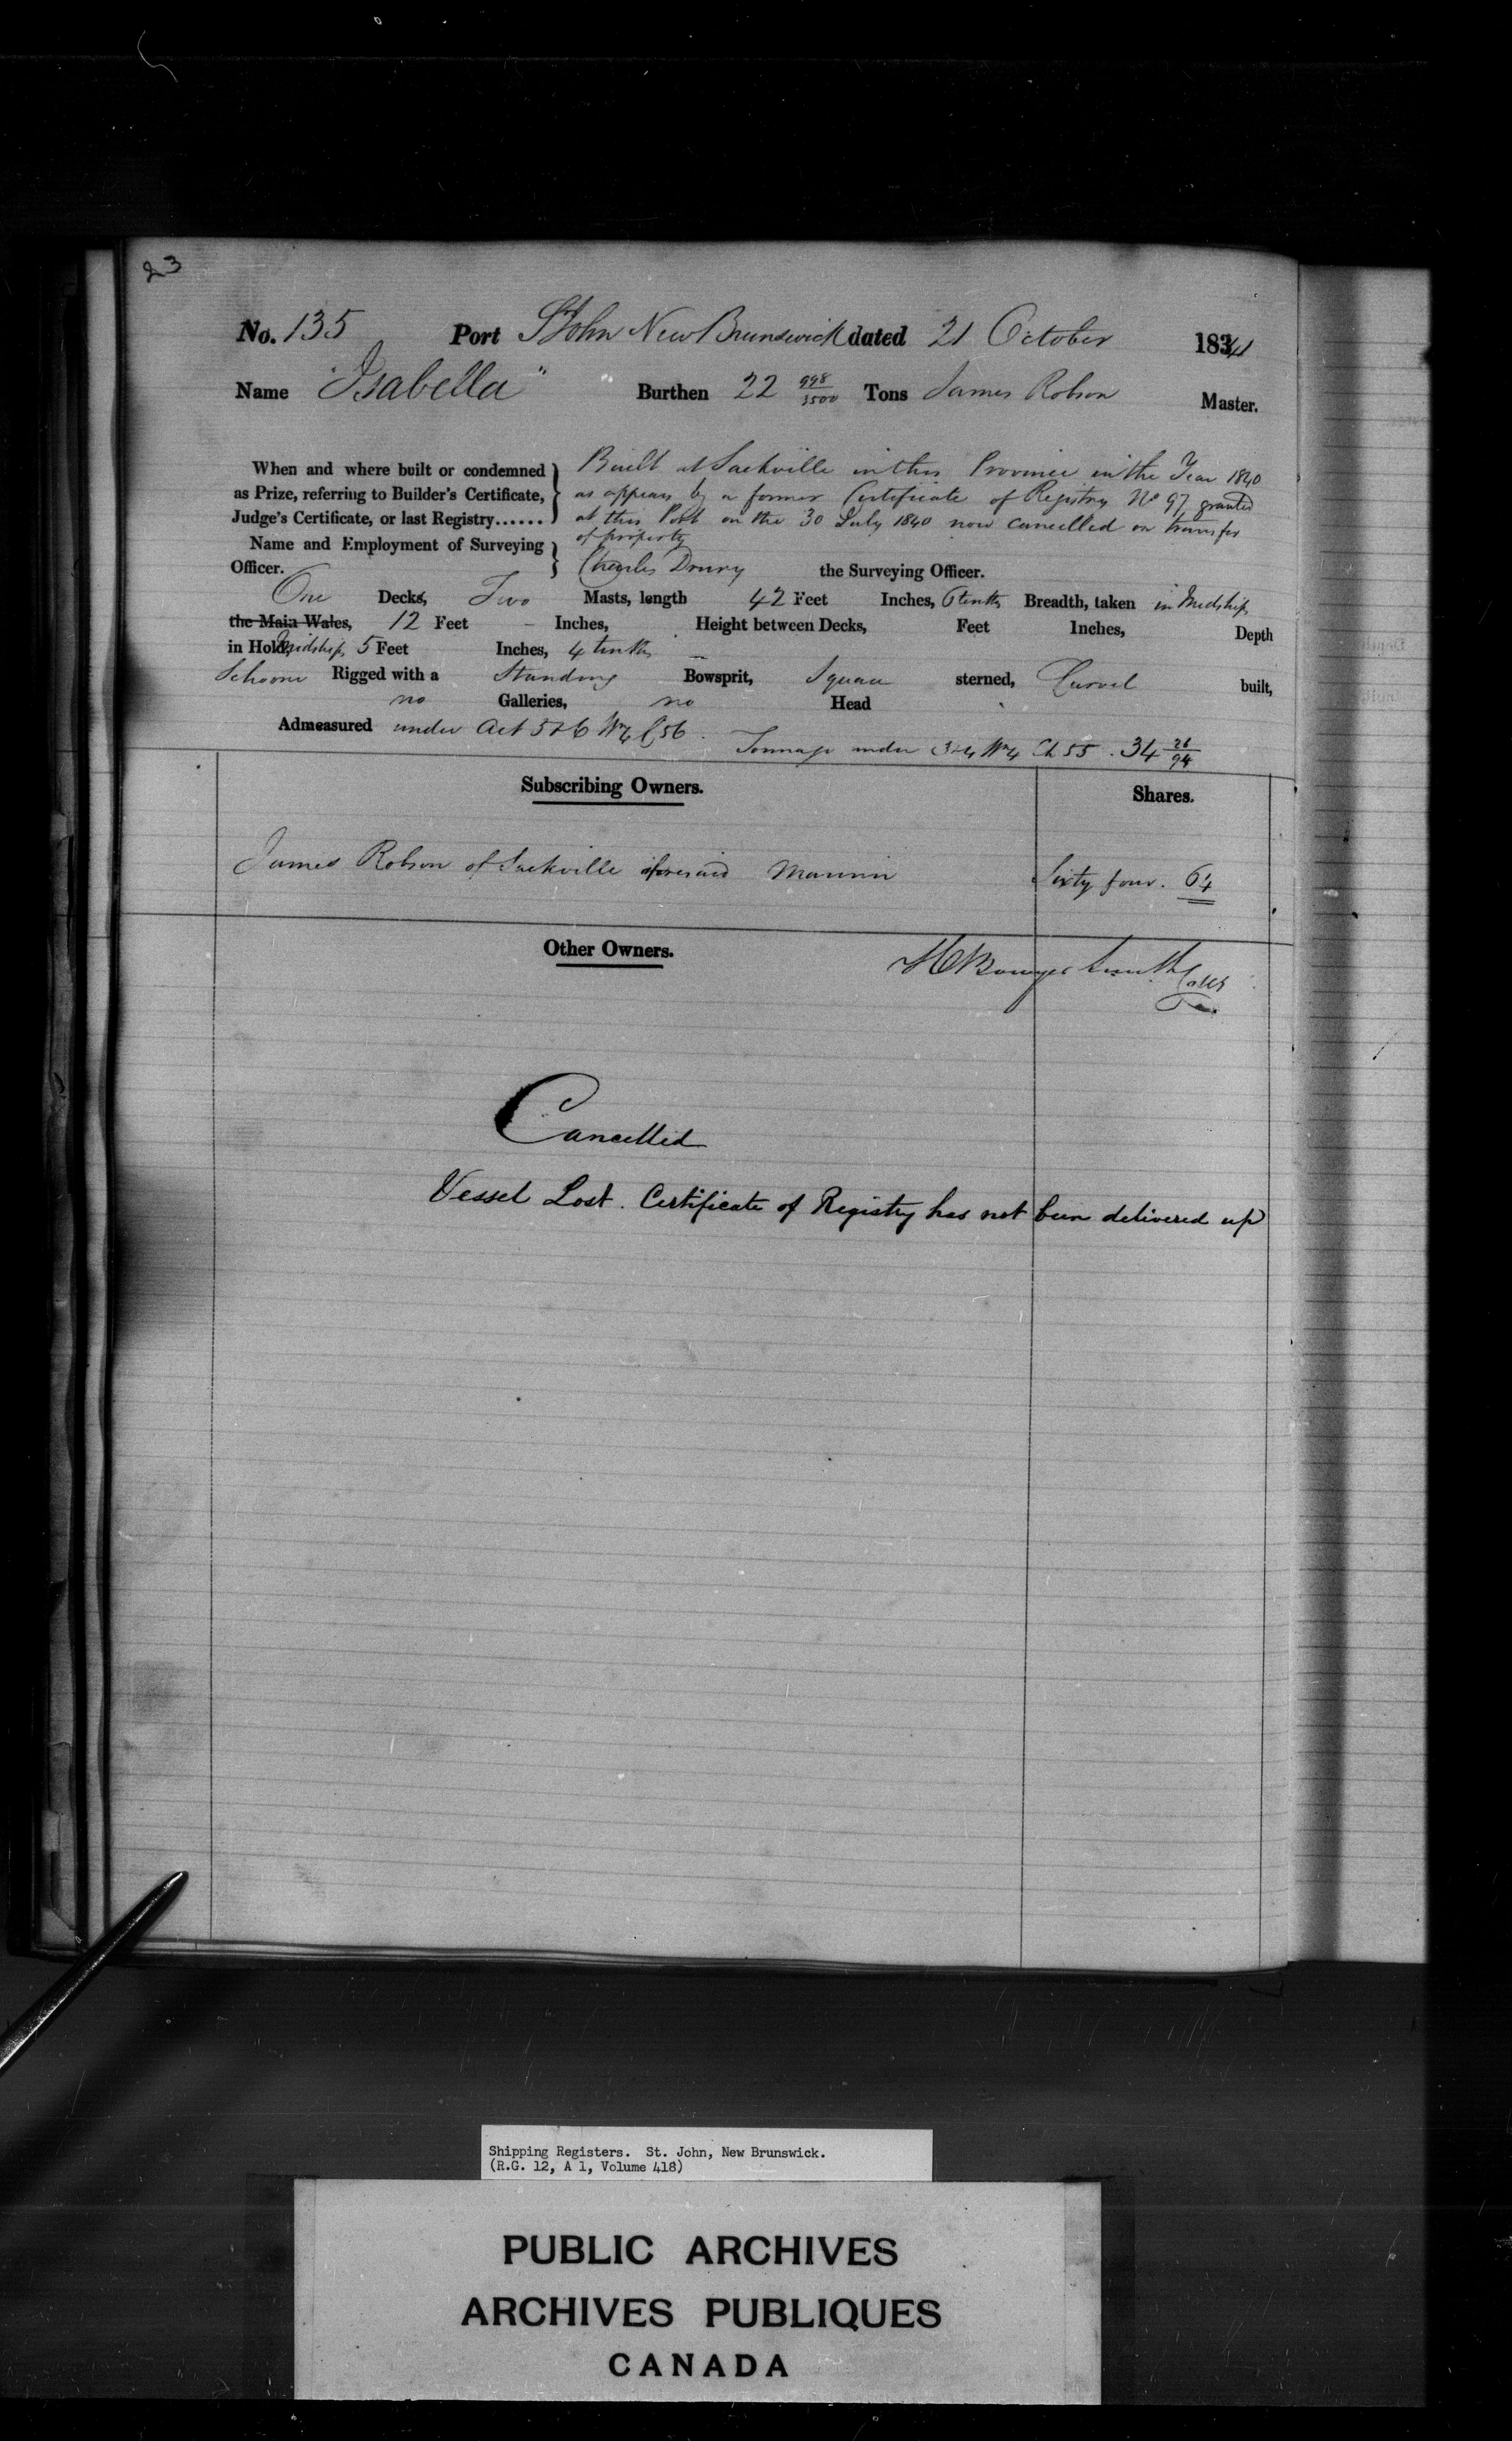 23
No. 135 Port St John New Brunswick dated 21 October 1841
Name "Isabella" Burthen 22 998/3500 Tons James Robson Master.
When and where built or condemned as Prize, referring to Builder's Certificate, Judge's Certificate, or last Registry......
Built at Sackville in this Province in the Year 1840
as appears by a former Certificate of Registry No 97 granted
at this Port on the 30 July 1840 now cancelled on transfer
of property
Name and Employment of Surveying Officer. Charles Drury the Surveying Officer.
One Decks, Two Masts, length 42 Feet Inches, 6 tenths Breadth, taken in Midships
the Main Wales, 12 Feet - Inches, Height between Decks, Feet Inches, Depth
in Hold, Midships 5 Feet Inches, 4 tenths
Schooner Rigged with a Standing Bowsprit, Square sterned, Carvel built,
no Galleries, no Head
Admeasured under Act 5 & 6 Wm 4 C 56.
Tonnage under 3 & 4 Wm 4 Ch 55. 34 26/94
Subscribing Owners. Shares.
James Robson of Sackville aforesaid Mariner Sixty four. 64
Other Owners.
H Bowyer Smith Collr
Cancelled
Vessel Lost. Certificate of Registry has not been delivered up
Shipping Registers. St. John, New Brunswick.
(R.G. 12, A 1, Volume 418)
PUBLIC ARCHIVES
ARCHIVES PUBLIQUES
CANADA